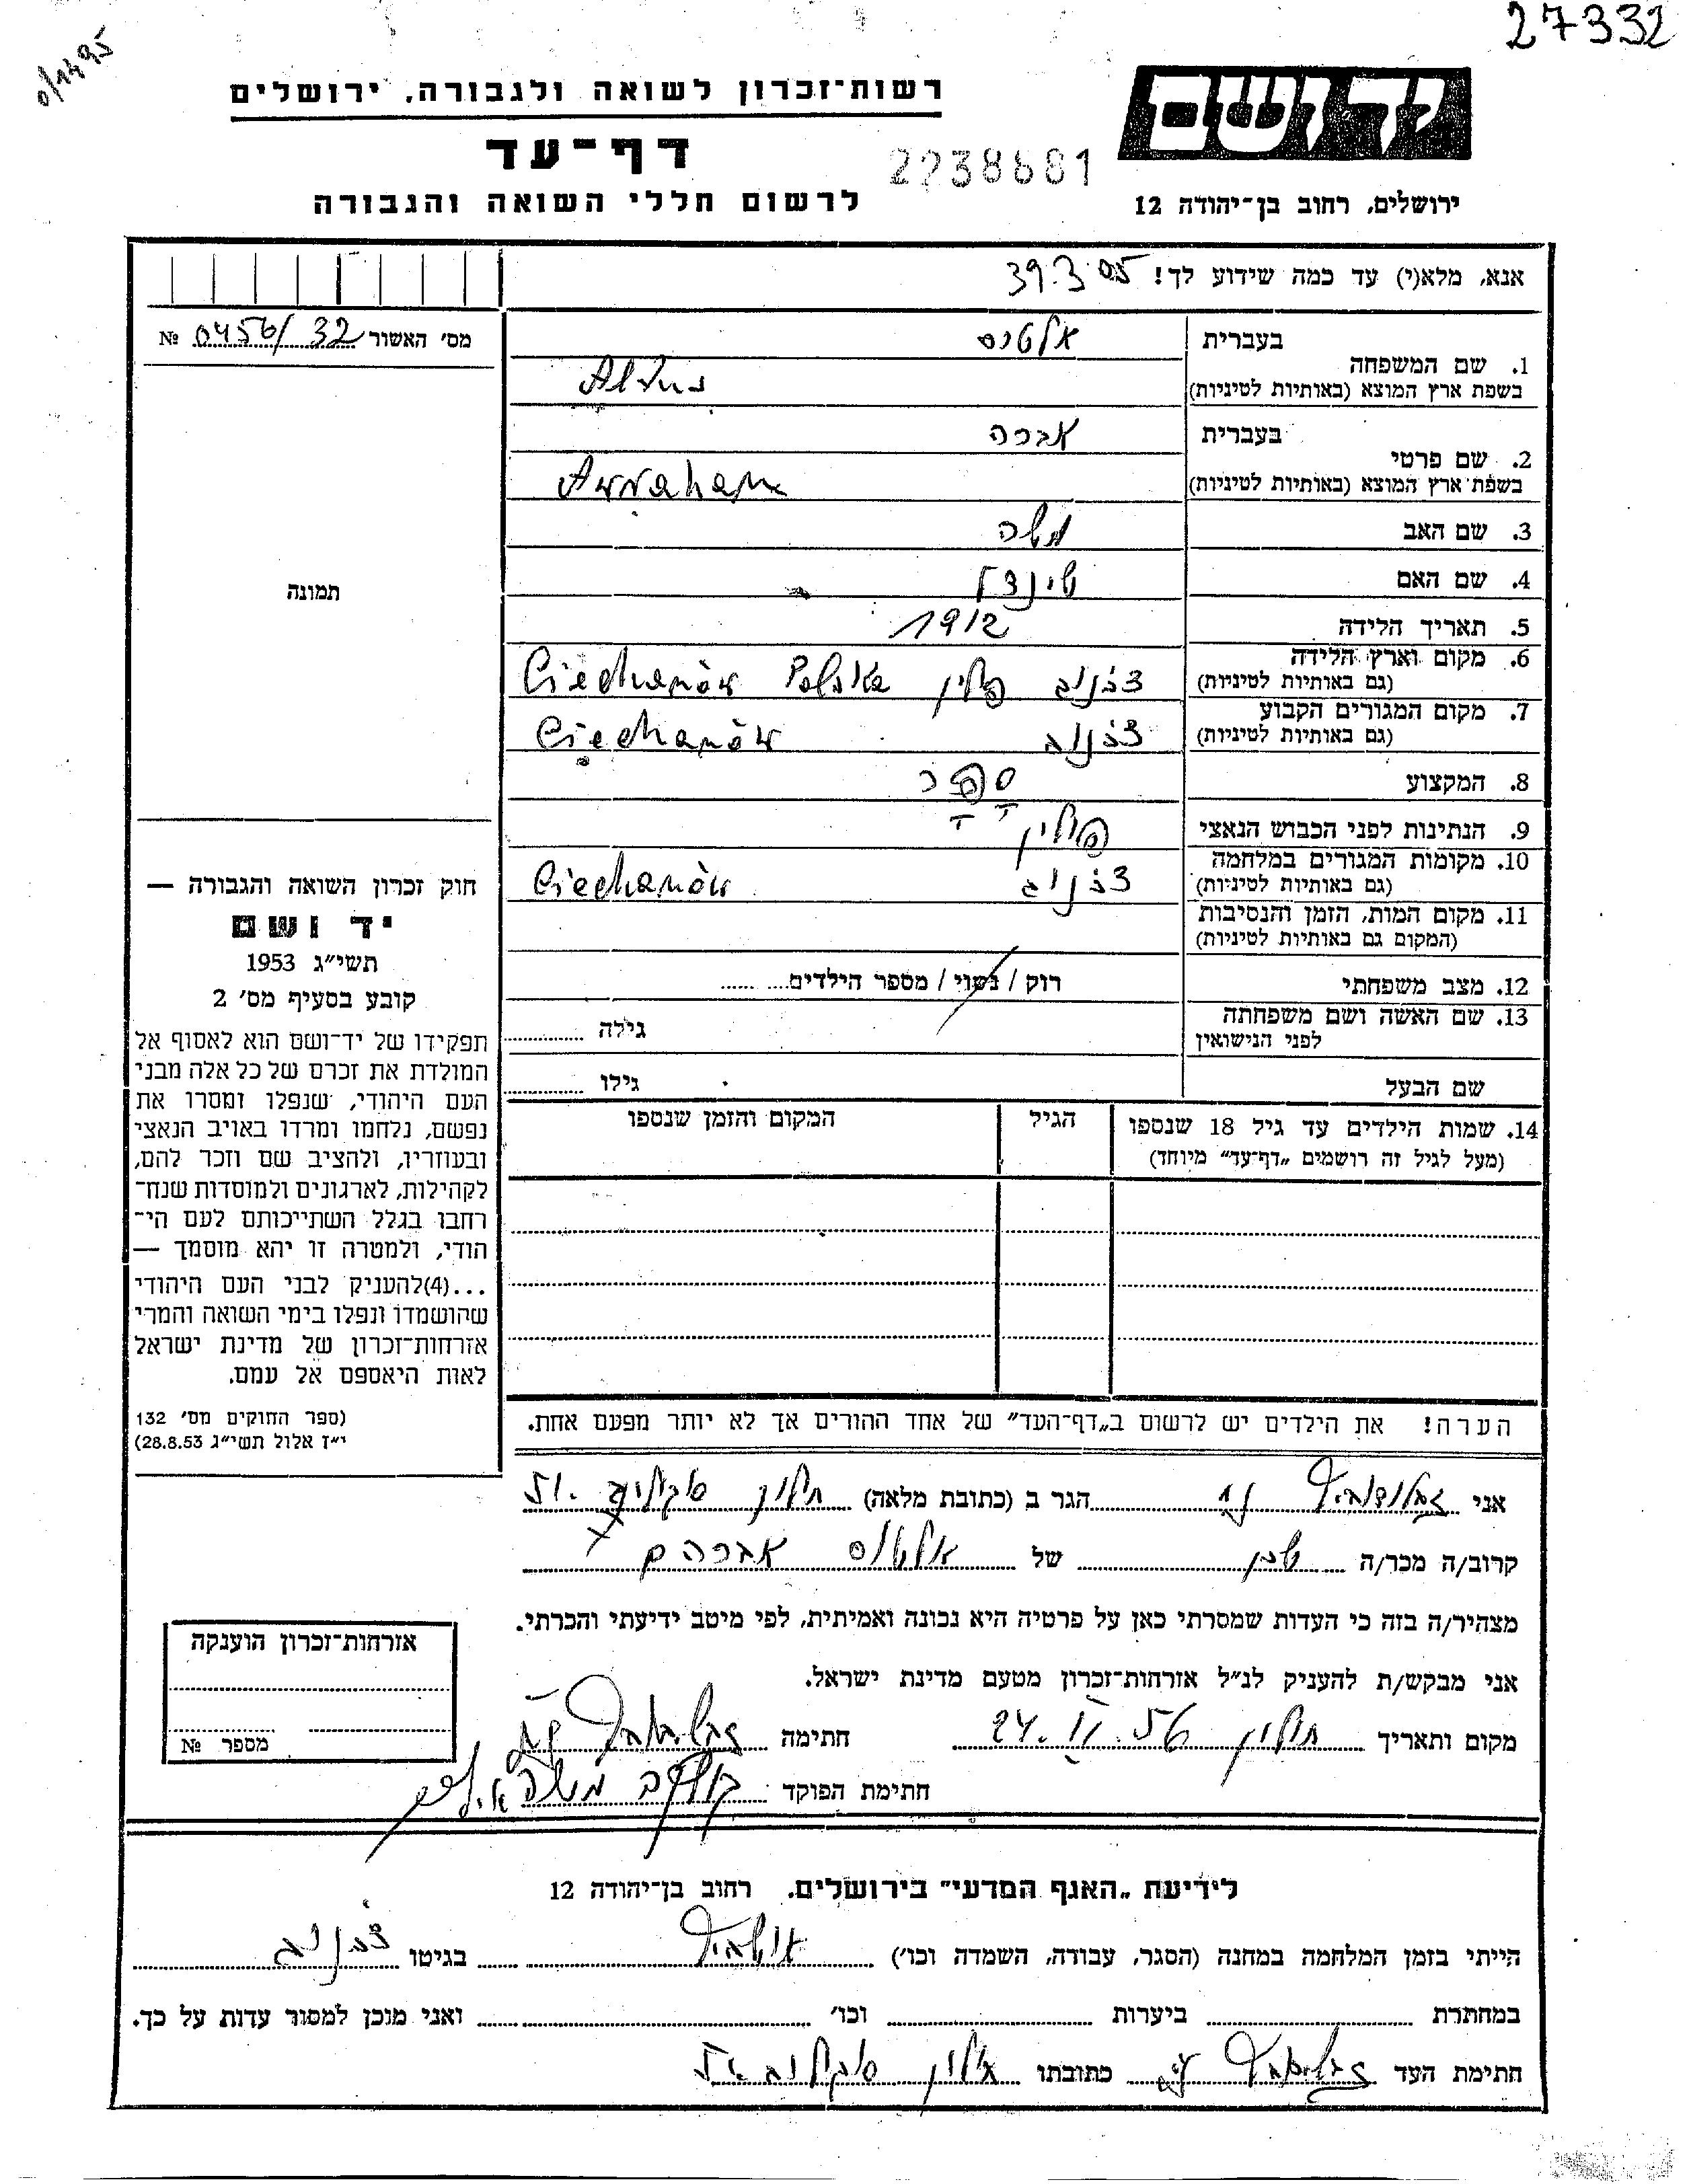 27332
רשות־זכרון לשואה ולגבורה, ירושלים
יד ושם
דף־עד
2238681
לרשום חללי השואה והגבורה
ירושלים, רחוב בן־יהודה 12
אנא, מלא(י) עד כמה שידוע לך!
מס' האשור 0456/32 №
תמונה
1. שם המשפחה
בעברית אלטוס
בשפת ארץ המוצא (באותיות לטיניות) Altus
2. שם פרטי
בעברית אברהם
בשפת ארץ המוצא (באותיות לטיניות) Awraham
3. שם האב משה
4. שם האם שינדל
5. תאריך הלידה 1912
6. מקום וארץ הלידה
(גם באותיות לטיניות) צכנוב פולין Ciechanów Polska
7. מקום המגורים הקבוע
(גם באותיות לטיניות) צכנוב Ciechanów
8. המקצוע ספר
9. הנתינות לפני הכבוש הנאצי פולין
10. מקומות המגורים במלחמה
(גם באותיות לטיניות) צכנוב Ciechanów
11. מקום המות, הזמן והנסיבות
(המקום גם באותיות לטיניות)
12. מצב משפחתי רוק / נשוי / מספר הילדים
13. שם האשה ושם משפחתה
לפני הנישואין גילה
שם הבעל גילו
14. שמות הילדים עד גיל 18 שנספו
(מעל לגיל זה רושמים „דף־עד" מיוחד)
הגיל
המקום והזמן שנספו
הערה! את הילדים יש לרשום ב„דף־העד" של אחד ההורים אך לא יותר מפעם אחת.
חוק זכרון השואה והגבורה —
יד ושם
תשי״ג 1953
קובע בסעיף מס' 2
תפקידו של יד־ושם הוא לאסוף אל
המולדת את זכרם של כל אלה מבני
העם היהודי, שנפלו ומסרו את
נפשם, נלחמו ומרדו באויב הנאצי
ובעוזריו, ולהציב שם וזכר להם,
לקהילות, לארגונים ולמוסדות שנח־
רחבו בגלל השתייכותם לעם הי־
הודי, ולמטרה זו יהא מוסמך —
...(4)להעניק לבני העם היהודי
שהושמדו ונפלו בימי השואה והמרי
אזרחות־זכרון של מדינת ישראל
לאות היאספם אל עמם.
(ספר החוקים מס' 132
י״ז אלול תשי״ג 28.8.53)
אני הגר ב (כתובת מלאה) חולון
קרוב/ה מכר/ה שכן של אלטוס אברהם
מצהיר/ה בזה כי העדות שמסרתי כאן על פרטיה היא נכונה ואמיתית, לפי מיטב ידיעתי והכרתי.
אני מבקש/ת להעניק לנ״ל אזרחות־זכרון מטעם מדינת ישראל.
מקום ותאריך חולון 24.II.56 חתימה
חתימת הפוקד
אזרחות־זכרון הוענקה
מספר №
לידיעת „האגף המדעי" בירושלים. רחוב בן־יהודה 12
הייתי בזמן המלחמה במחנה (הסגר, עבודה, השמדה וכו') אושביץ בגיטו צכנוב
במחתרת ביערות וכו' ואני מוכן למסור עדות על כך.
חתימת העד כתובתו חולון